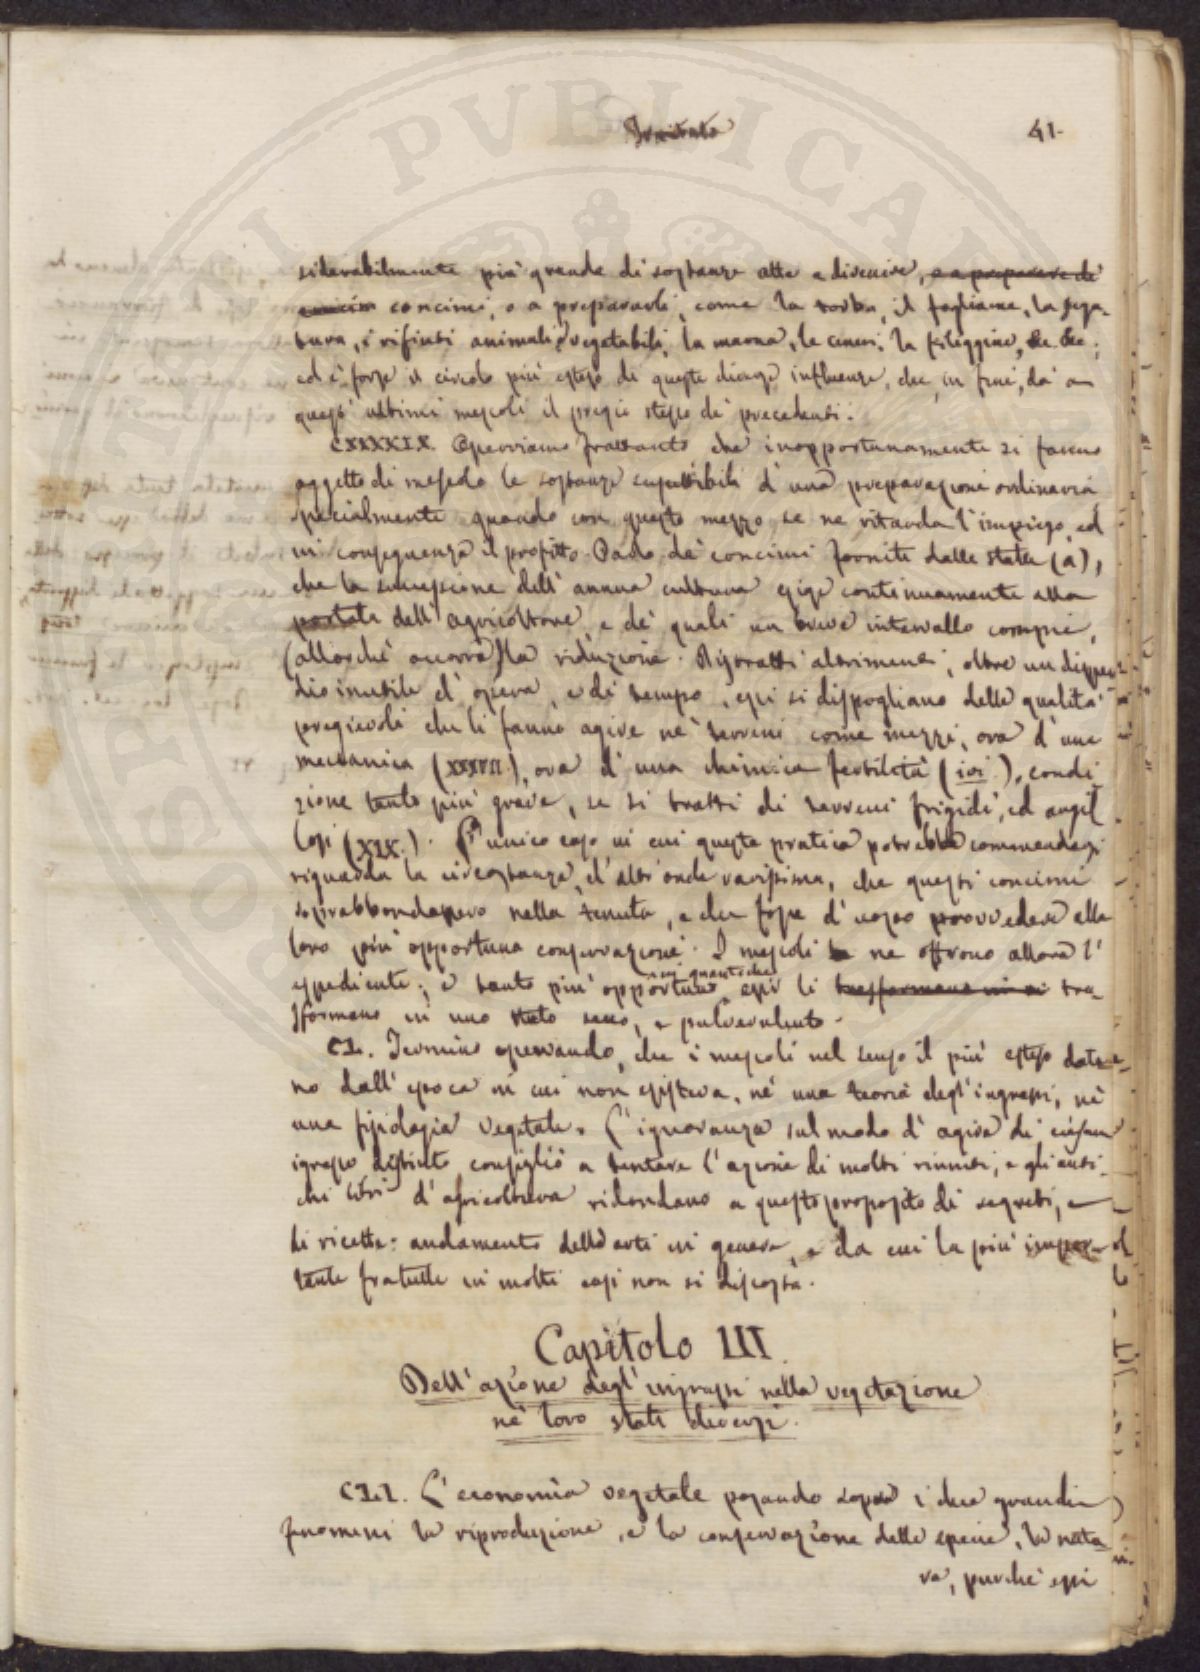 41.
siderabilmente più grande di sostanze atte a divenire, e a preparare de
concimi concimi, o a prepararli, come la torba, il fogliame, la sega-
tura, i rifiuti animali, e vegetabili, la marna, le ceneri, la fileggine, &c. &c.;
ed è forse il circolo più esteso di queste diverse influenze, che, in fine, dà a
questi ultimi mescoli il pregio stesso de' precedenti.
CXXXXIX. Osserviamo frattanto che inopportunamente si fanno
oggetto di mescolo le sostanze suscettibili d'una preparazione ordinaria
specialmente quando con questo mezzo se ne ritarda l'impiego, ed
in conseguenza il profitto. Parlo de' concimi forniti dalle stalle (a),
che la successione dell'annua cultura esige continuamente alla
portata dell'agricoltore, e de' quali un breve intervallo compie,
(allorchè occorra) la riduzione. Ristratti altrimenti, oltre un dispen-
dio inutile d'opera, e di tempo, essi si dispogliano delle qualità
pregievoli che li fanno agire ne' terreni come mezzi, ora d'una
meccanica (XXXVII.), ora d'una chimica fertilità (ivi), condi-
zione tanto più grave, se si tratti di terreni frigidi, ed argil-
losi (XIX.). L'unico caso in cui questa pratica potrebbe commendarsi
riguarda la circostanza, d'altronde rarissima, che questi concimi
soprabbondassero nella tenuta, e che fosse d'uopo provvedere alla
loro più opportuna conservazione. I mescoli ne offrono allora l'
espediente; e tanto più opportuno in quanto che essi li trasformano in tra-
sformano in uno stato secco, e pulverulento.
CL. Termino osservando, che i mescoli nel senso il più esteso data-
no dall'epoca in cui non esisteva, nè una teoria degl'ingrassi, nè
una fisiologia vegetale. L'ignoranza sul modo d'agire di ciascun
igrasso distinto consigliò a tentare l'azione di molti riuniti, e gli anti-
chi libri d'agricoltura ridondano a questo proposito di segreti, e
di ricette: andamento dell'arti in genere, e da cui la più impor-
tante fratelle in molti casi non si discosta.
Capitolo III.
Dell'azione degl'ingrassi nella vegetazione
ne' loro stati diversi.
CLI. L'economia vegetale posando sopra i due grandi
fenomeni la riproduzione, e la conservazione delle specie, la natu-
ra, purchè essi